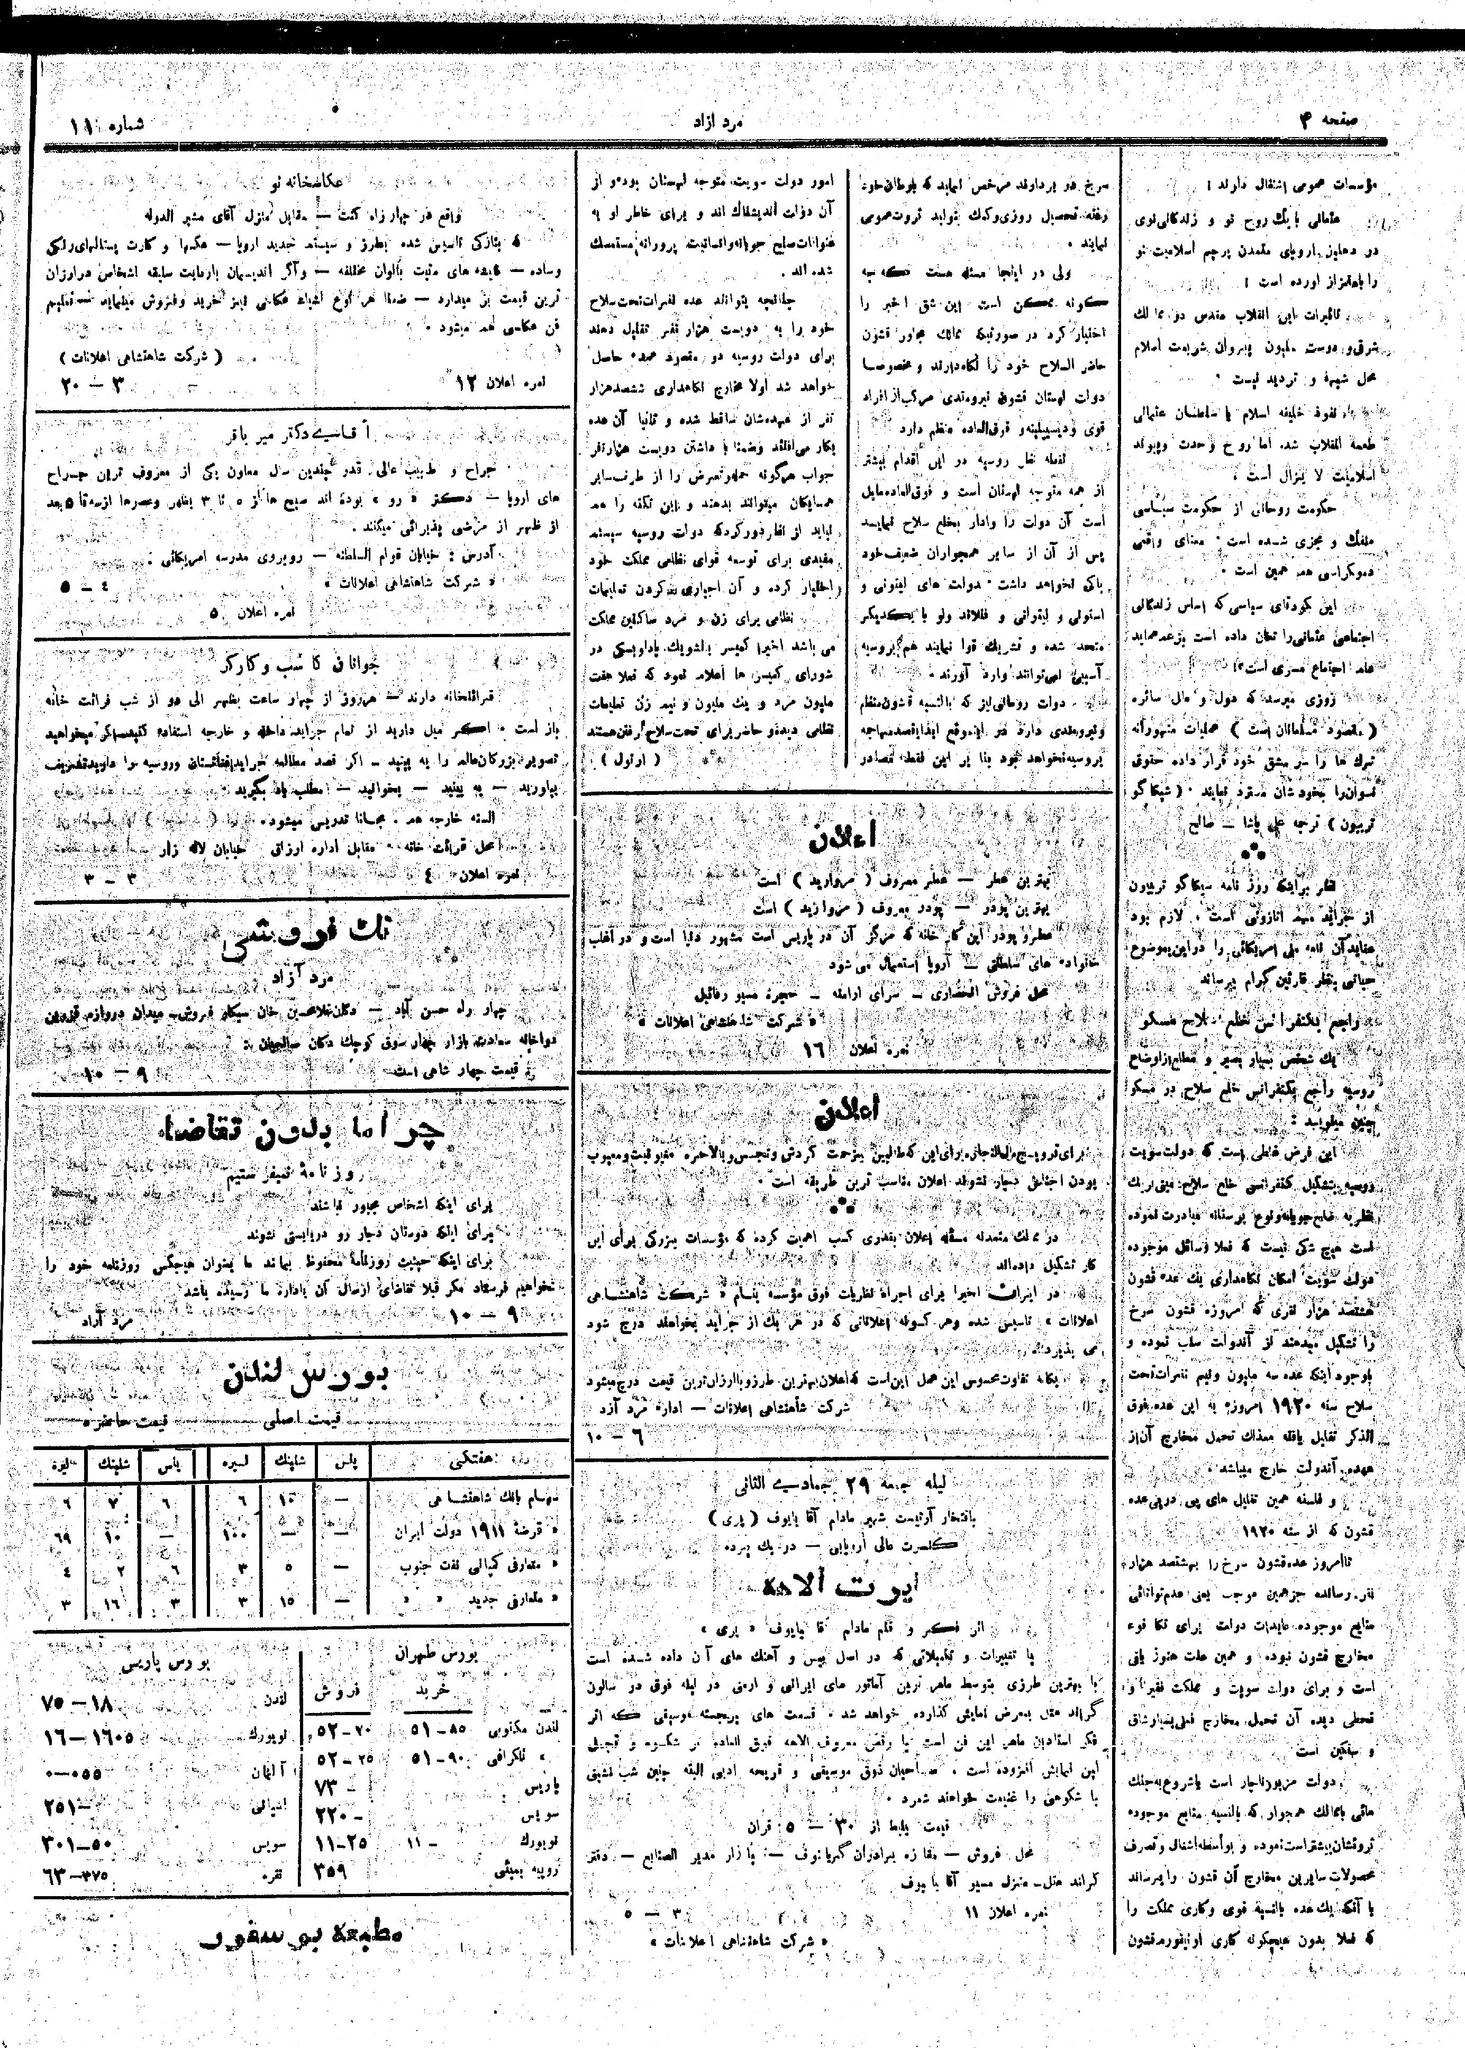 صفحه ۴
مرد ازاد
شماره ۱۱
مؤسسات عمومی اشتغال دارند !
عثمانی با یك روح نو و زندگانی نوی
در دهلیز اروپای متمدن پرچم اسلامیت نو
را باهتزاز اورده است !
تاثیرات این انقلاب مقدس در ممالك
شرقی و دوست ملیون پیروان شریعت اسلام
محل شبهه و تردید نیست ·
نفوذ خلیفه اسلام یا سلطان عثمانی
طعمۀ انقلاب شد، اما روح وحدت و پیوند
اسلامیت لا یزال است ،
حکومت روحانی از حکومت سیاسی
منفك و مجزی شده است · معنای واقعی
دموکراسی همه همین است .
این کودتای سیاسی که اساس زندگانی
اجتماعی عثمانی را تکان داده است
روزی میرسد که دول و ملل سائره
( مقصود مسلمانان است ) عملیات متهورانه
ترك ها را سر مشق خود قرار داده حقوق
نسوان را بخودشان مسترد نمایند · ( شیکاگو
تریبون ) ترجمه علی پاشا — صالح
نظر براینکه روز نامه سیکاگو تریبون
از جراید مهمه اتازونی است . لازم بود
عقاید آن نامه ملی امریکائی را در این موضوع
حیاتی بنظر قارئین گرام برساند
راجع بکنفرانس خلع سلاح مسکو
یك شخص بسیار بصیر و مطلع از اوضاع
روسیه راجع بکنفرانس خلع سلاح در مسکو
چنین مینویسد :
این فرض غلطی است که دولت سویت
روسیه بتشکیل کنفرانسی خلع سلاح مبنی بر یك
نظریه صلح جویانه و نوع پرستانه مبادرت نموده
است هیچ شکی نیست که فعلا وسائل موجوده
دولت سویت امکان نگاهداری یك عده قشون
هشتصد هزار نفری که امروزه قشون سرخ
را تشکیل میدهند از آندولت سلب نموده و
باوجود اینکه عده سه ملیون ونیم نفرات تحت
سلاح سنه ۱۹۲۰ امروزه به این عده فوق
الذکر تقلیل یافته معذلك تحمل مخارج آن از
عهده آندولت خارج میباشد .
و فلسفه همین تقلیل های پی در پی عده
قشون که از سنه ۱۹۲۰
تا امروز عده قشون سرخ را بهشتصد هزار
نفر رسانده جز همین موجب یعنی عدم توانائی
منابع موجوده عایدات دولت برای تکافوء
مخارج قشون نبوده و همین علت هنوز باقی
است و برای دولت سویت و مملکت فقیر و
قحطی دیده آن تحمل مخارج فعلی بسیار شاق
و سنگین است
دولت مزبور ناچار است یا شروع بجنك
با ممالك همجوار که بالنسبه منابع موجوده
ثروتشان بیشتر است نموده و بواسطه اشغال و تصرف
محصولات سایرین مخارج آن قشون را برساند
یا آنکه یك عده بالنسبه قوی وکاری مملکت را
که فعلا بدون هیچگونه کاری اونیفورم قشون
سرخ در بر دارند مرخص نماید که باوطان خود
رفته تحصیل روزی و کمك بتولید ثروت عمومی
نمایند .
ولی در اینجا مسئله هست که به
چگونه ممکن است این شق اخیر را
اختیار کرد در صورتیکه ممالك مجاور قشون
حاضر السلاح خود را نگاه دارند و مخصوصا
دولت لهستان قشون نیرومندی مرکب از افراد
قوی و دیسیپلینه و فوق العاده منظم دارد
نقطه نظر روسیه در این اقدام بیشتر
از همه متوجه لهستان است و فوق العاده مایل
است آن دولت را وادار بخلع سلاح نمایند
پس از آن از سایر همجواران ضعیف خود
باکی نخواهد داشت · دولت های لیتونی و
استونی و لیتوانی و فنلاند ولو با یکدیگر
متحد شده و تشریك قوا نمایند هم بروسیه
آسیبی نمی توانند وارد آورند .
دولت رومانی نیز که بالنسبه قشون منظم
ونیرومندی دارد در این موقع ابدا قصد مهاجمه
بروسیه نخواهد نمود بنا بر این فقط تصادر
امور دولت سویت متوجه لهستان بوده و از
آن دولت اندیشناك اند و برای خاطر او به
عنوانات صلح جویانه و انسانیت پرورانه متمسك
شده اند .
چنانچه بتوانند عده نفرات تحت سلاح
خود را به دویست هزار نفر تقلیل دهند
برای دولت روسیه دو مقصود عمده حاصل
خواهد شد اولا مخارج نگاهداری ششصد هزار
نفر از عهده‌شان ساقط شده و ثانیا آن عده
بکار می‌افتند وضمنا با داشتن دویست هزار نفر
جواب هرگونه حمله و تعرض را از طرف سایر
همسایگان میتوانند بدهند و این نکته را هم
نباید از نظر دور کرد که دولت روسیه سیستم
مفیدی برای توسعه قوای نظامی مملکت خود
اختیار کرده و آن اجباری نمکردن تعلیمات
نظامی برای زن و مرد ساکنین مملکت
می باشد اخیرا کمیسر بالشویك پادوویسکی در
شورای کمیسر ها اعلام نمود که فعلا هفت
ملیون مرد و یك ملیون و نیم زن تعلیمات
نظامی دیده و حاضر برای تحت سلاح رفتن هستند
( ارتول )
اعلان
بهترین عطر — عطر معروف ( مروارید ) است
بهترین پودر — پودر معروف ( مروارید ) است
عطر و پودر این کار خانه که مرکز آن در پاریس است مشهور دنیا است و در اغلب
خانواده های سلطنتی — اروپا استعمال می شود
محل فروش انحصاری — سرای ارامنه — حجره مسیو رفائیل
« شرکت شاهنشاهی اعلانات »
نمره اعلان ۱۶
اعلان
برای ترویج مال التجاره برای این که طالبین بزحمت گردش و تجسس و بالاخره
بودن اجناس دچار نشوند اعلان مناسب ترین طریقه است .
در ممالك متمدنه مسئله اعلان بقدری کسب اهمیت کرده که مؤسسات بزرگی برای این
کار تشکیل داده‌اند
در ایران اخیرا برای اجراء نظریات فوق مؤسسه بنام « شرکت شاهنشاهی
اعلانات » تاسیس شده وهر گونه اعلاناتی که در هر یك از جراید بخواهند درج شود
می پذیرد.
یگانه تفاوت محسوس این عمل این است که اعلان بهترین طرز و با ارزان ترین قیمت درج میشود
شرکت شاهنشاهی اعلانات — اداره مرد آزاد
۶ — ۱۰
لیله جمعه ۲۹ جمادی الثانی
بافتخار آرتیست شهیر مادام آقا بایوف ( پری )
کنسرت عالی اروپایی — در یك پرده
اپرت الاهه
اثر فکر و قلم مادام آقا بایوف « پری »
با تغییرات و تکمیلاتی که در اصل پیس و آهنك های آن داده شده است
با بهترین طرزی بتوسط ماهر ترین آماتور های ایرانی و ارمنی در لیله فوق در سالون
گراند هتل بمعرض نمایش گذارده خواهد شد . قسمت های برجسته موسیقی که اثر
فکر استادان ماهر این فن است با رقص معروف الاهه فوق العاده بر شکوه و تجمل
این نمایش افزوده است . صاحبان ذوق موسیقی و قریحه ادبی البته چنین شب
با شکوهی را غنیمت خواهند شمرد .
قیمت بلیط از ۳۰ — ۵ قران
محل فروش — مغازه برادران گریانوف — بازار مدیر الصنایع — دفتر
گراند هتل — منزل مسیو آقا بایوف
نمره اعلان ۱۱
۳ — ۵
« شرکت شاهنشاهی اعلانات »
عکاسخانه نو
واقع در چهار راه کنت — مقابل منزل آقای مشیر الدوله
که بتازگی تاسیس شده بطرز و سیستم جدید اروپا — عکسها و کارت پستالهای رنگی
وساده — های مثبت بالوان مختلفه — وآگراندیسمان با رعایت سابقه اشخاص در ارزان
ترین قیمت بر میدارد — ضمنا هر نوع اشیاء عکاسی نیز خرید وفروش مینماید — تعلیم
فن عکاسی هم میشود .
( شرکت شاهنشاهی اعلانات )
نمره اعلان ۱۲
۳ — ۲۰
آقای دکتر میر باقر
جراح و طبیب عالی قدر چندین سال معاون یکی از معروف ترین جراح
های اروپا — دکتر « رو » بوده اند صبح ها از ۵ تا ۳ بظهر وعصرها از سه تا ۵ بعد
از ظهر از مرضی پذیرائی میکنند .
آدرس : خیابان قوام السلطنه — روبروی مدرسه امریکائی .
« شرکت شاهنشاهی اعلانات »
٤ — ۵
نمره اعلان ۵
جوانان کاسب و کارگر
قرائتخانه دارند — هر روز از چهار ساعت بظهر الی دو از شب قرائت خانه
باز است . اگر میل دارید از تمام جراید داخله و خارجه استفاده کنید اگر میخواهید
تصویر بزرگان عالم را به بینید — اگر قصد مطالعه جراید افغانستان و روسیه را دارید تشریف
بیاورید — به بینید — بخوانید — مطلب یاد بگیرید
السنه خارجه هم . مجانا تدریس میشود .
محل قرائت خانه مقابل اداره ارزاق خیابان لاله زار
نمره اعلان ٤
۳ — ۳
تك فروشی
مرد آزاد
چهار راه حسن آباد — دکان غلامحسین خان سیگار فروش — میدان دروازه قزوین
دواخانه سعادت بازار چهار سوق کوچك دکان
قیمت چهار شاهی است
۹ — ۱۰
چرا ما بدون تقاضا
روزنامه نمیفرستیم
برای اینکه اشخاص مجبور نباشند
برای اینکه دوستان دچار رو دربایستی نشوند
برای اینکه حیثیت روزنامه محفوظ بماند ما بعنوان هیچکس روزنامه خود را
نخواهیم فرستاد مگر قبلا تقاضای ارسال آن باداره ما رسیده باشد
مرد آزاد
۹ — ۱۰
بورس لندن
قیمت اصلی قیمت حاضره
هفتگی پنس شلینك لیره پنس شلینك لیره
سهام بانك شاهنشاهی — ۱۰ ۶ ۶ ۷ ۶
« قرضۀ ۱۹۱۱ دولت ایران — — ۱۰۰ — ۱۰ ۶۹
« متعارفی کمپانی نفت جنوب — ۵ ۳ ۶ ۲ ٤
« متعارفی جدید « « — ۱۵ ۳ ۳ ۱۶ ۳
بورس طهران
خرید فروش
لندن مکتوبی ۸۵–۵۱ ۲۰–۵۲
« تلگرافی ۹۰–۵۱ ۲۵–۵۲
پاریس ۷۳–
سویس –۲۲۰
نویورك –۱۱ ۲۵–۱۱
روپیه بمبئی ۳۵۹
بورس پاریس
لندن ۱۸—۷۵
نیویورك ۱۶۰۵—۱۶
آلمان ۰۵۵—۰
ایتالی —۲۵۱
سویس ۵۰—۳۰۱
نقره ۳۷۵—۶۳
مطبعه بوسفور